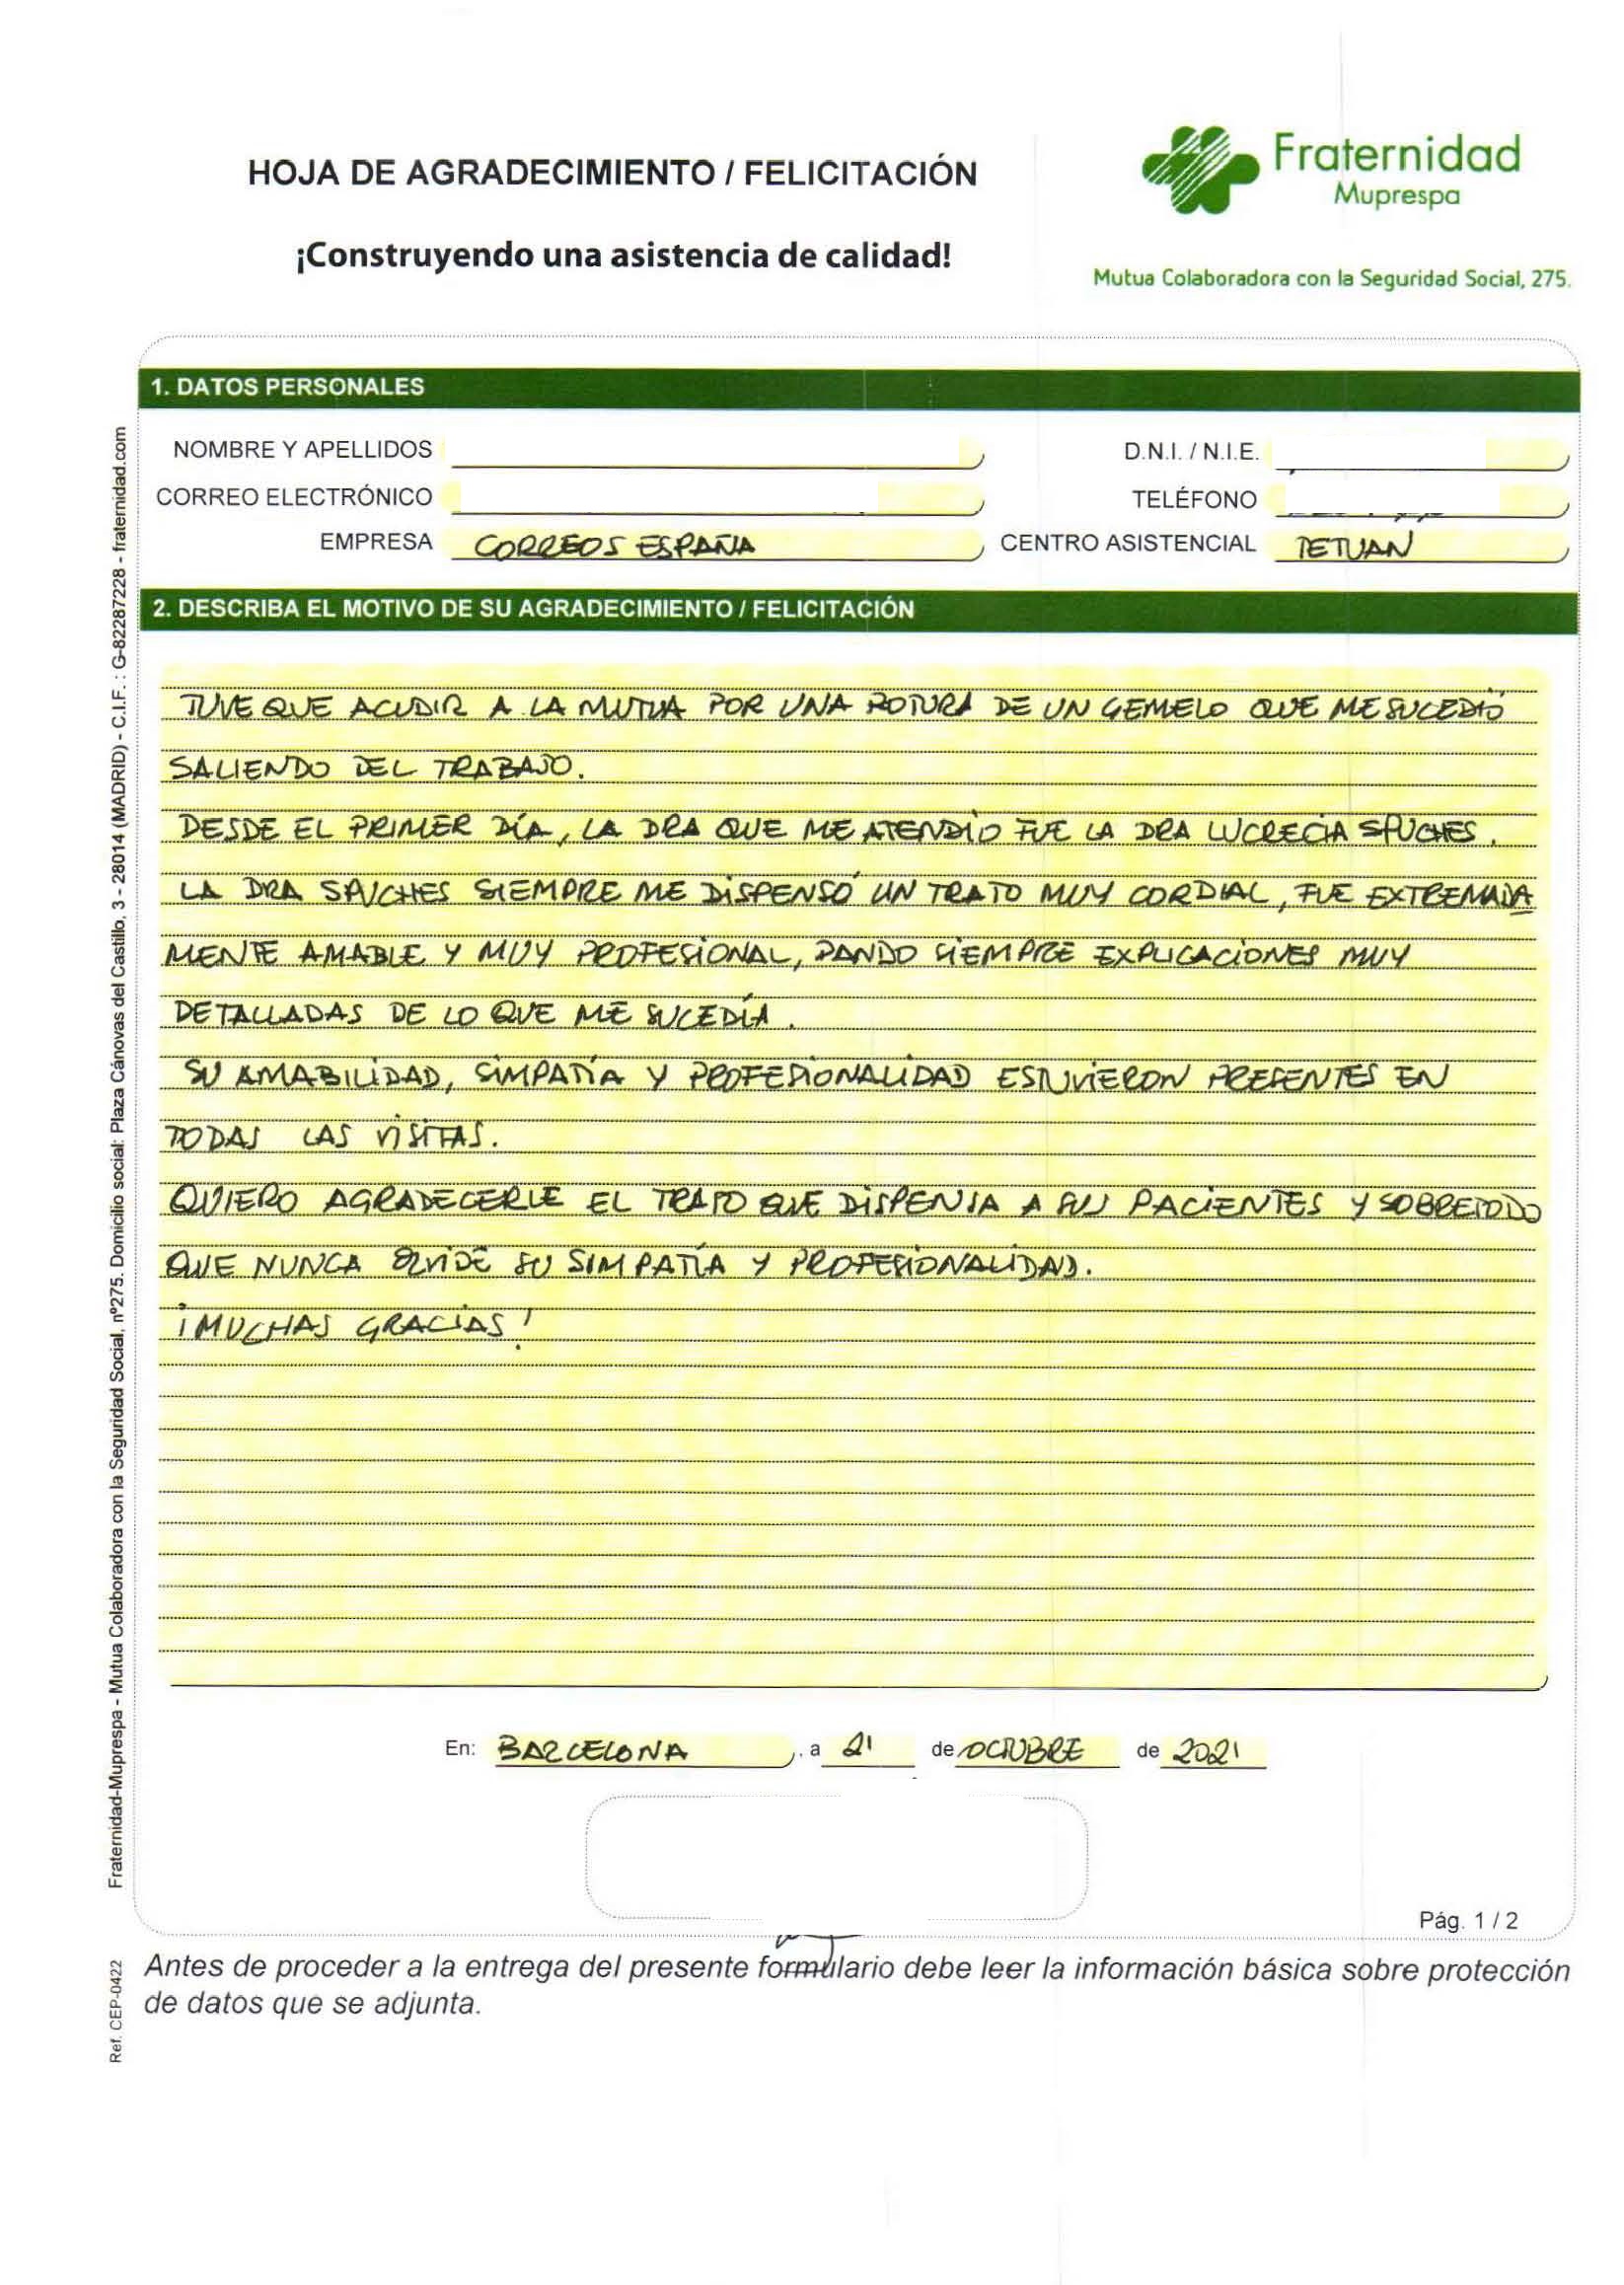 HOJA DE AGRADECIMIENTO / FELICITACIÓN
¡Construyendo una asistencia de calidad!
Fraternidad
Muprespa
Mutua Colaboradora con la Seguridad Social, 275.
1. DATOS PERSONALES
NOMBRE Y APELLIDOS
D.N.I. / N.I.E.
CORREO ELECTRÓNICO
TELÉFONO
EMPRESA CORREOS ESPAÑA
CENTRO ASISTENCIAL TETUAN
2. DESCRIBA EL MOTIVO DE SU AGRADECIMIENTO / FELICITACIÓN
TUVE QUE ACUDIR A LA MUTUA POR UNA ROTURA DE UN GEMELO QUE ME SUCEDIÓ
SALIENDO DEL TRABAJO.
DESDE EL PRIMER DÍA, LA DRA QUE ME ATENDIO FUE LA DRA LUCRECIA
LA DRA SIEMPRE ME DISPENSÓ UN TRATO MUY CORDIAL, FUE EXTREMADA
MENTE AMABLE Y MUY PROFESIONAL, DANDO SIEMPRE EXPLICACIONES MUY
DETALLADAS DE LO QUE ME SUCEDÍA.
SU AMABILIDAD, SIMPATÍA Y PROFESIONALIDAD ESTUVIERON PRESENTES EN
TODAS LAS VISITAS.
QUIERO AGRADECERLE EL TRATO QUE DISPENSA A SUS PACIENTES Y SOBRETODO
QUE NUNCA OLVIDE SU SIMPATÍA Y PROFESIONALIDAD.
¡MUCHAS GRACIAS!
En: BARCELONA, a 21 de OCTUBRE de 2021
Pág. 1 / 2
Antes de proceder a la entrega del presente formulario debe leer la información básica sobre protección
de datos que se adjunta.
Fraternidad-Muprespa - Mutua Colaboradora con la Seguridad Social, nº275. Domicilio social: Plaza Cánovas del Castillo, 3 - 28014 (MADRID) - C.I.F. : G-82287228 - fraternidad.com
Ref. CEP-0422